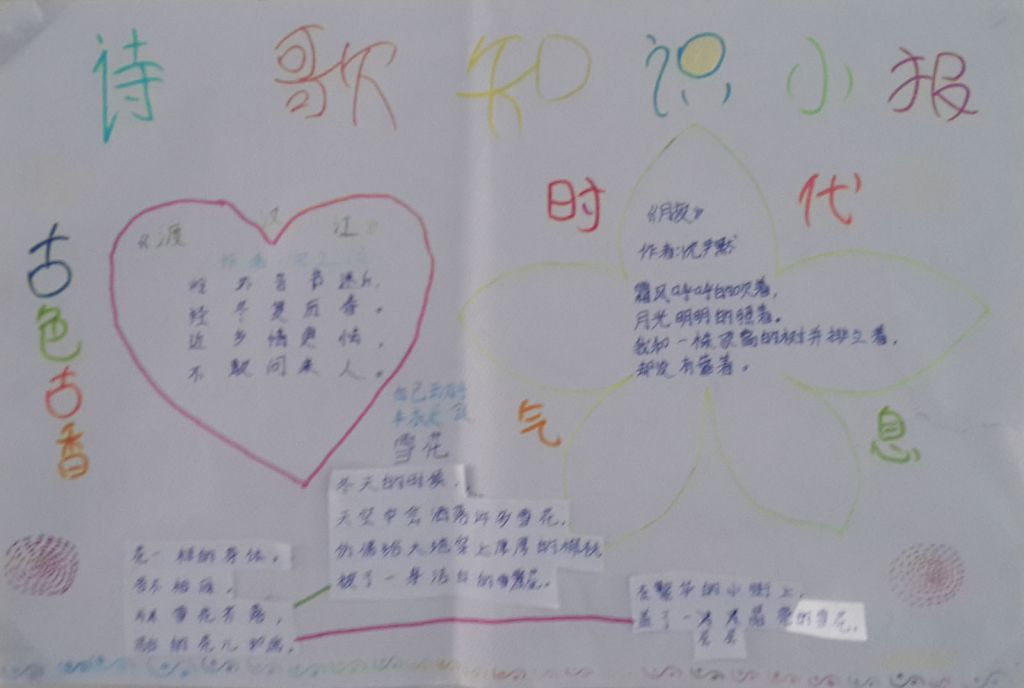 诗歌知识小报
古色古香
《渡汉江》
岭外音书
经冬复历春。
近乡情更怯,
不敢问来人。
时代气息
《月夜》
作者:沈尹默
霜风呼呼的吹着,
月光明明的照着。
我和一株顶高的树并排立着,
却没有靠着。
雪花
冬天的时候,
天空中会洒落许多雪花,
仿佛给大地穿上厚厚的棉袄,
披了一身洁白的
花一样的身体,
在繁华的小街上,
盖了一层层晶莹的雪花,